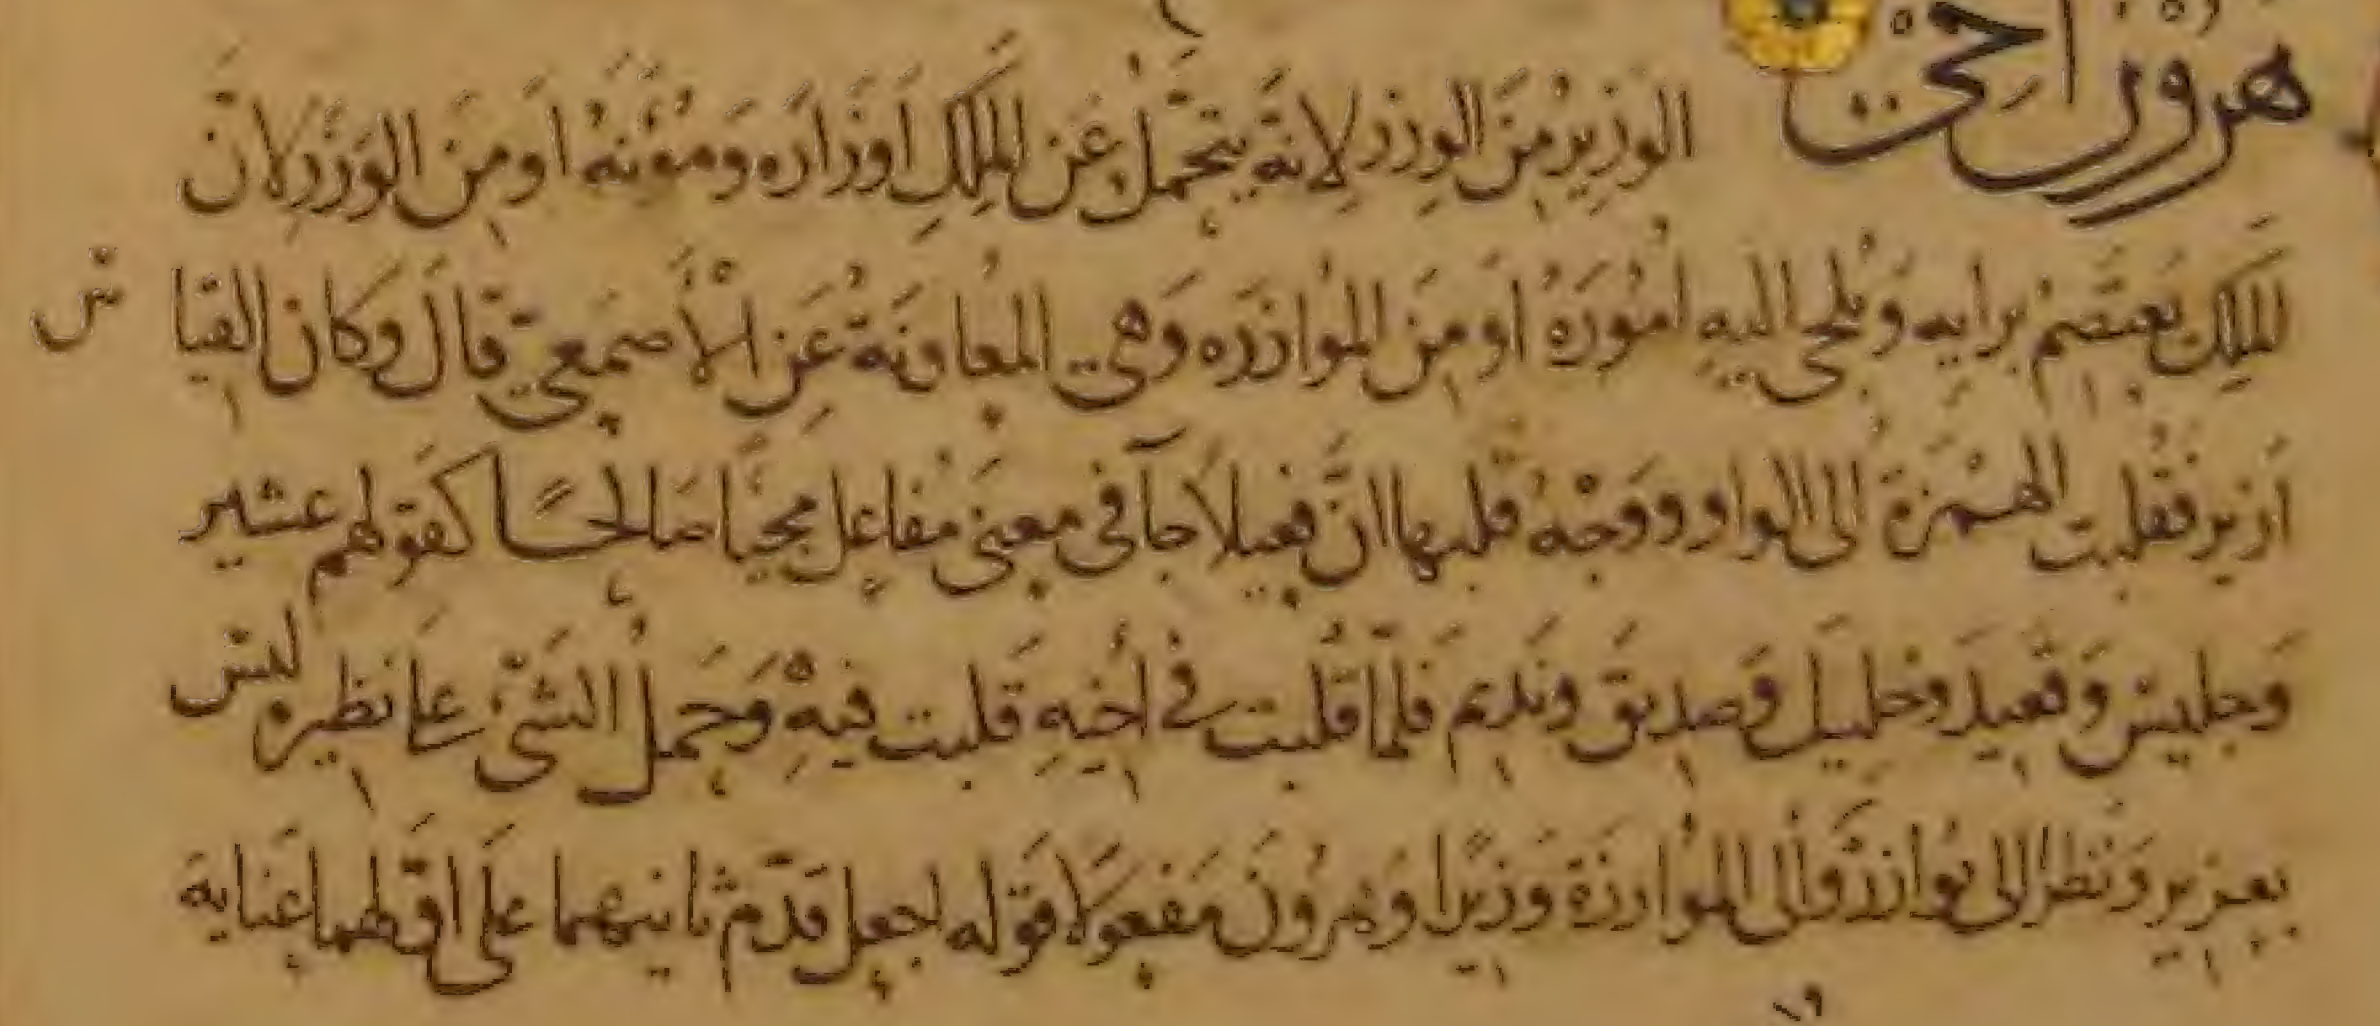 هرون اخى
الوزير من الوزر لانه يتحمل عن الملك اوزاره ومؤنه او من الوزر لان
الملك يعتصم برايه ويلجى اليه اموره او من الموازرة وهى المعاونة عن الاصمعى قال وكان القياس
ازير فقلبت الهمزة الى الواو ووجه قلبها ان فعيلا جآ فى معنى مفاعل مجيا صالحا كقولهم عشير
وجليس وقعيد وخليل وصديق ونديم فلما قلبت فى اخيه قلبت فيه وحمل الشىء على نظيره ليس
بعزيز ونظرا الى يوازر والى الموازرة وزيرا وهرون مفعولا قوله اجعل قدم ثانيهما على اولهما عناية